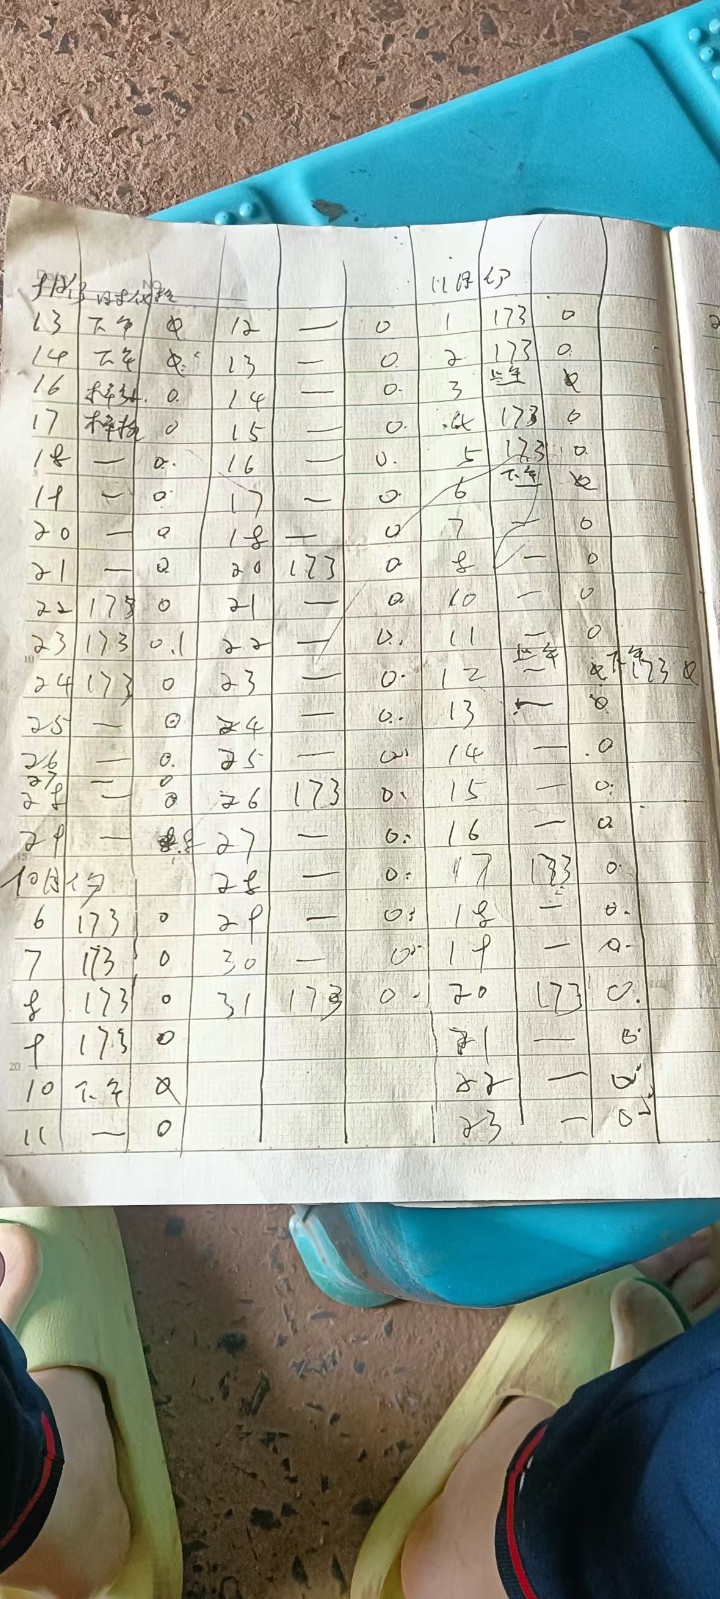 9月份 11月份
13 下午 0 12 — 0 1 173 0
14 下午 0 13 — 0 2 173 0
16 0 14 — 0 3 上午 0
17 0 15 — 0 4 173 0
18 — 0 16 — 0 5 173 0
19 — 0 17 — 0 6 下午 0
20 — 0 18 — 0 7 — 0
21 — 0 20 173 0 8 — 0
22 173 0 21 — 0 10 — 0
23 173 0.1 22 — 0 11 — 0
24 173 0 23 — 0 12 上午 — 0 下午 173 0
25 — 0 24 — 0 13 — 0
26 — 0 25 — 0 14 — 0
27 — 0
28 — 0 26 173 0 15 — 0
29 — 27 — 0 16 — 0
10月份 28 — 0 17 173 0
6 173 0 29 — 0 18 — 0
7 173 0 30 — 0 19 — 0
8 173 0 31 173 0 20 173 0
9 173 0 21 — 0
10 下午 0 22 — 0
11 — 0 23 — 0